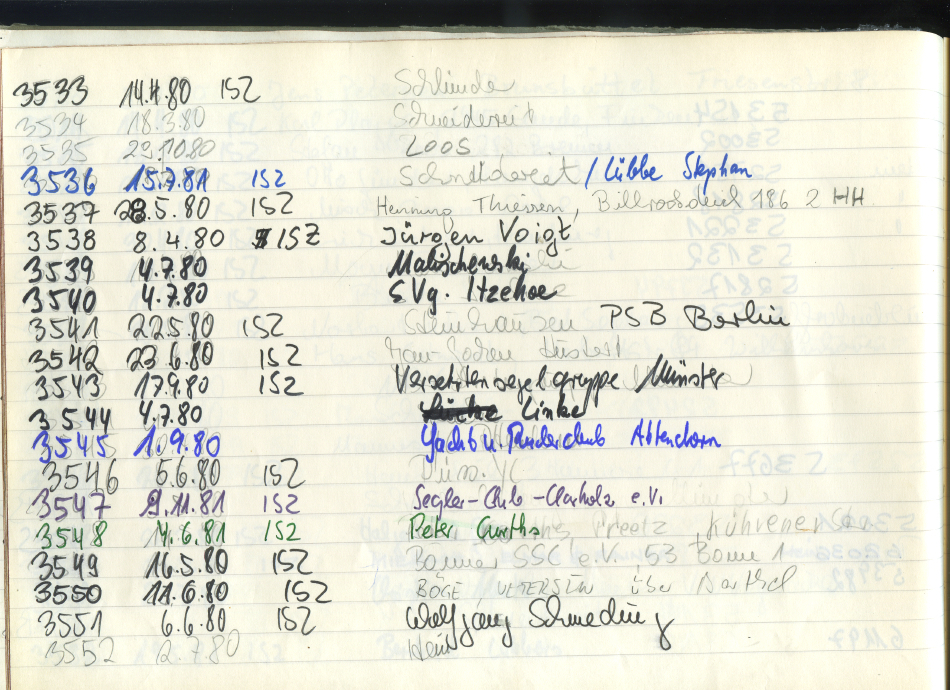 3533 14.4.80 ISZ
3534 18.3.80 Schneidereit
3535 23.10.80 LOOS
3536 15.7.81 ISZ / Lübbe Stephan
3537 28.5.80 ISZ Henning Thiessen, 186 2 HH
3538 8.4.80 ISZ Jürgen Voigt
3539 4.7.80 Malischewski
3540 4.7.80 S.Vg. Itzehoe
3541 22.5.80 ISZ Steinhausen PSB Berlin
3542 23.6.80 ISZ
3543 17.9.80 ISZ Versehrtensegelgruppe Münster
3544 4.7.80 Linke
3545 1.9.80 Yacht u. Ruderclub Attendorn
3546 5.6.80 ISZ
3547 9.11.81 ISZ Segler-Club-Clarholz e.V.
3548 14.6.81 ISZ Peter Preetz, Kührener
3549 16.5.80 ISZ Bonner SSC e.V., 53 Bonn 1
3550 11.6.80 ISZ BÖGE, UETERSEN über Barthel
3551 6.6.80 ISZ Wolfgang Schmeding
3552 2.7.80 Hein